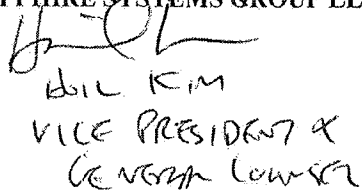 SYSTEMS GROUP
KIM
VICE PRESIDENT &
GENERAL COUNSEL